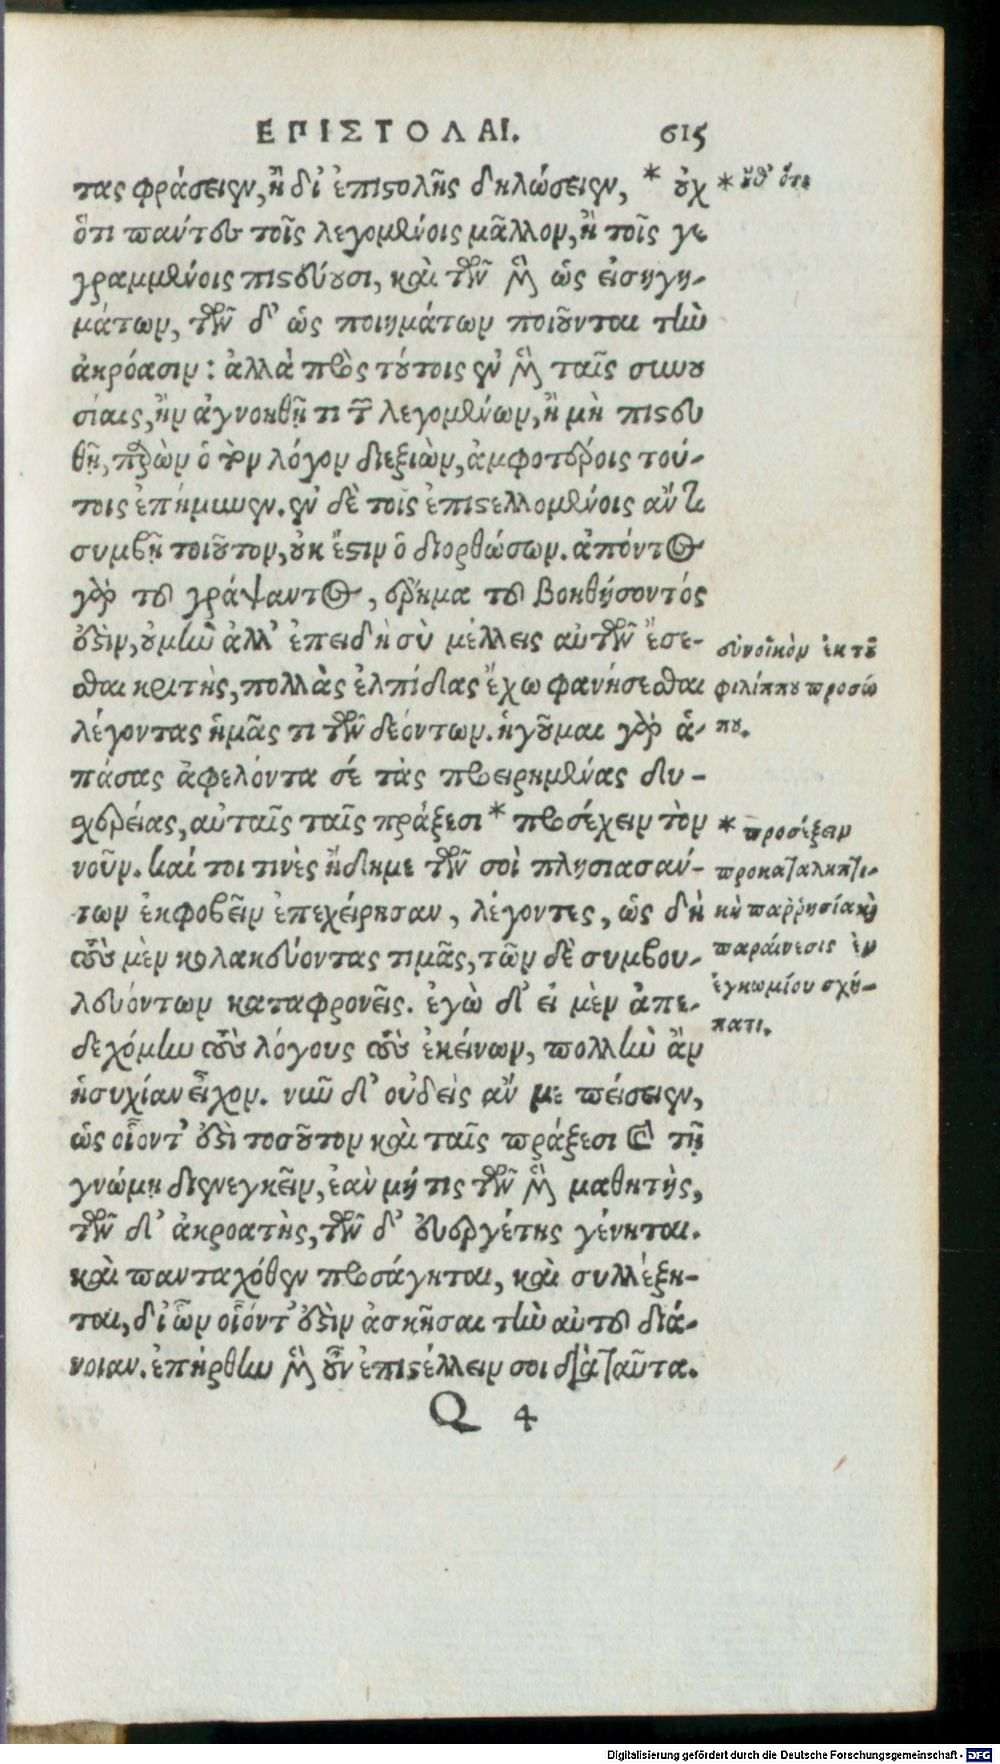 ΕΠΙΣΤΟΛΑΙ. 615
τας φράσειεν, ἢ δι' ἐπιστολῆς δηλώσειεν, * οὐχ
ὅτι πάντες τοῖς λεγομένοις μᾶλλον, ἢ τοῖς γε
γραμμένοις πιστεύουσι, καὶ τῶν μὲν ὡς εἰσηγη-
μάτων, τῶν δ' ὡς ποιημάτων ποιοῦνται τὴν
ἀκρόασιν: ἀλλὰ πρὸς τούτοις ἐν μὲν ταῖς συνου
σίαις, ἢν ἀγνοηθῇ τι τῶν λεγομένων, ἢ μὴ πιστευ
θῇ, παρὼν ὁ τὸν λόγον διεξιὼν, ἀμφοτέροις τού-
τοις ἐπήμυνεν. ἐν δὲ τοῖς ἐπιστελλομένοις ἄν τι
συμβῇ τοιοῦτον, οὐκ ἔστιν ὁ διορθώσων. ἀπόντος
γὰρ τοῦ γράψαντος, ἔρημα τοῦ βοηθήσοντός
ἐστιν, οὐ μὴν ἀλλ' ἐπειδὴ σὺ μέλλεις αὐτῶν ἔσε-
σθαι κριτὴς, πολλὰς ἐλπίδας ἔχω φανήσεσθαι
λέγοντας ἡμᾶς τι τῶν δεόντων. ἡγοῦμαι γὰρ ἁ-
πάσας ἀφελόντα σέ τὰς προειρημένας δυ-
σχερείας, αὐταῖς ταῖς πράξεσι * προσέχειν τὸν
νοῦν. καί τοι τινὲς ἤδη με τῶν σοὶ πλησιασάν-
των ἐκφοβεῖν ἐπεχείρησαν, λέγοντες, ὡς δὴ
σὺ τοὺς μὲν κολακεύοντας τιμᾷς, τῶν δὲ συμβου-
λευόντων καταφρονεῖς. ἐγὼ δ' εἰ μὲν ἀπε-
δεχόμην τοὺς λόγους τοὺς ἐκείνων, πολλὴν ἂν
ἡσυχίαν εἶχον. νῦν δ' οὐδεὶς ἄν με πείσειεν,
ὡς οἷόντ' ἐστὶ τοσοῦτον καὶ ταῖς πράξεσι καὶ τῇ
γνώμῃ διενεγκεῖν, ἐὰν μή τις τῶν μὲν μαθητὴς,
τῶν δ' ἀκροατὴς, τῶν δ' εὑρετής γένηται.
καὶ πανταχόθεν προσάγηται, καὶ συλλέξη-
ται, δι' ὧν οἷόντ' ἐστὶν ἀσκῆσαι τὴν αὑτοῦ διά-
νοιαν. ἐπήρθην μὲν οὖν ἐπιστέλλειν σοι διὰ ταῦτα.
Q 4
* οὔθ' ὅτι
εὐνοϊκὸν ἐκ τοῦ
φιλίππου προσώ
που.
* προσέξειν
προκαταληπτι-
κὴ παῤῥησία καὶ
παραίνεσις ἐν
ἐγκωμίου σχή-
ματι.
Digitalisierung gefördert durch die Deutsche Forschungsgemeinschaft - DFG